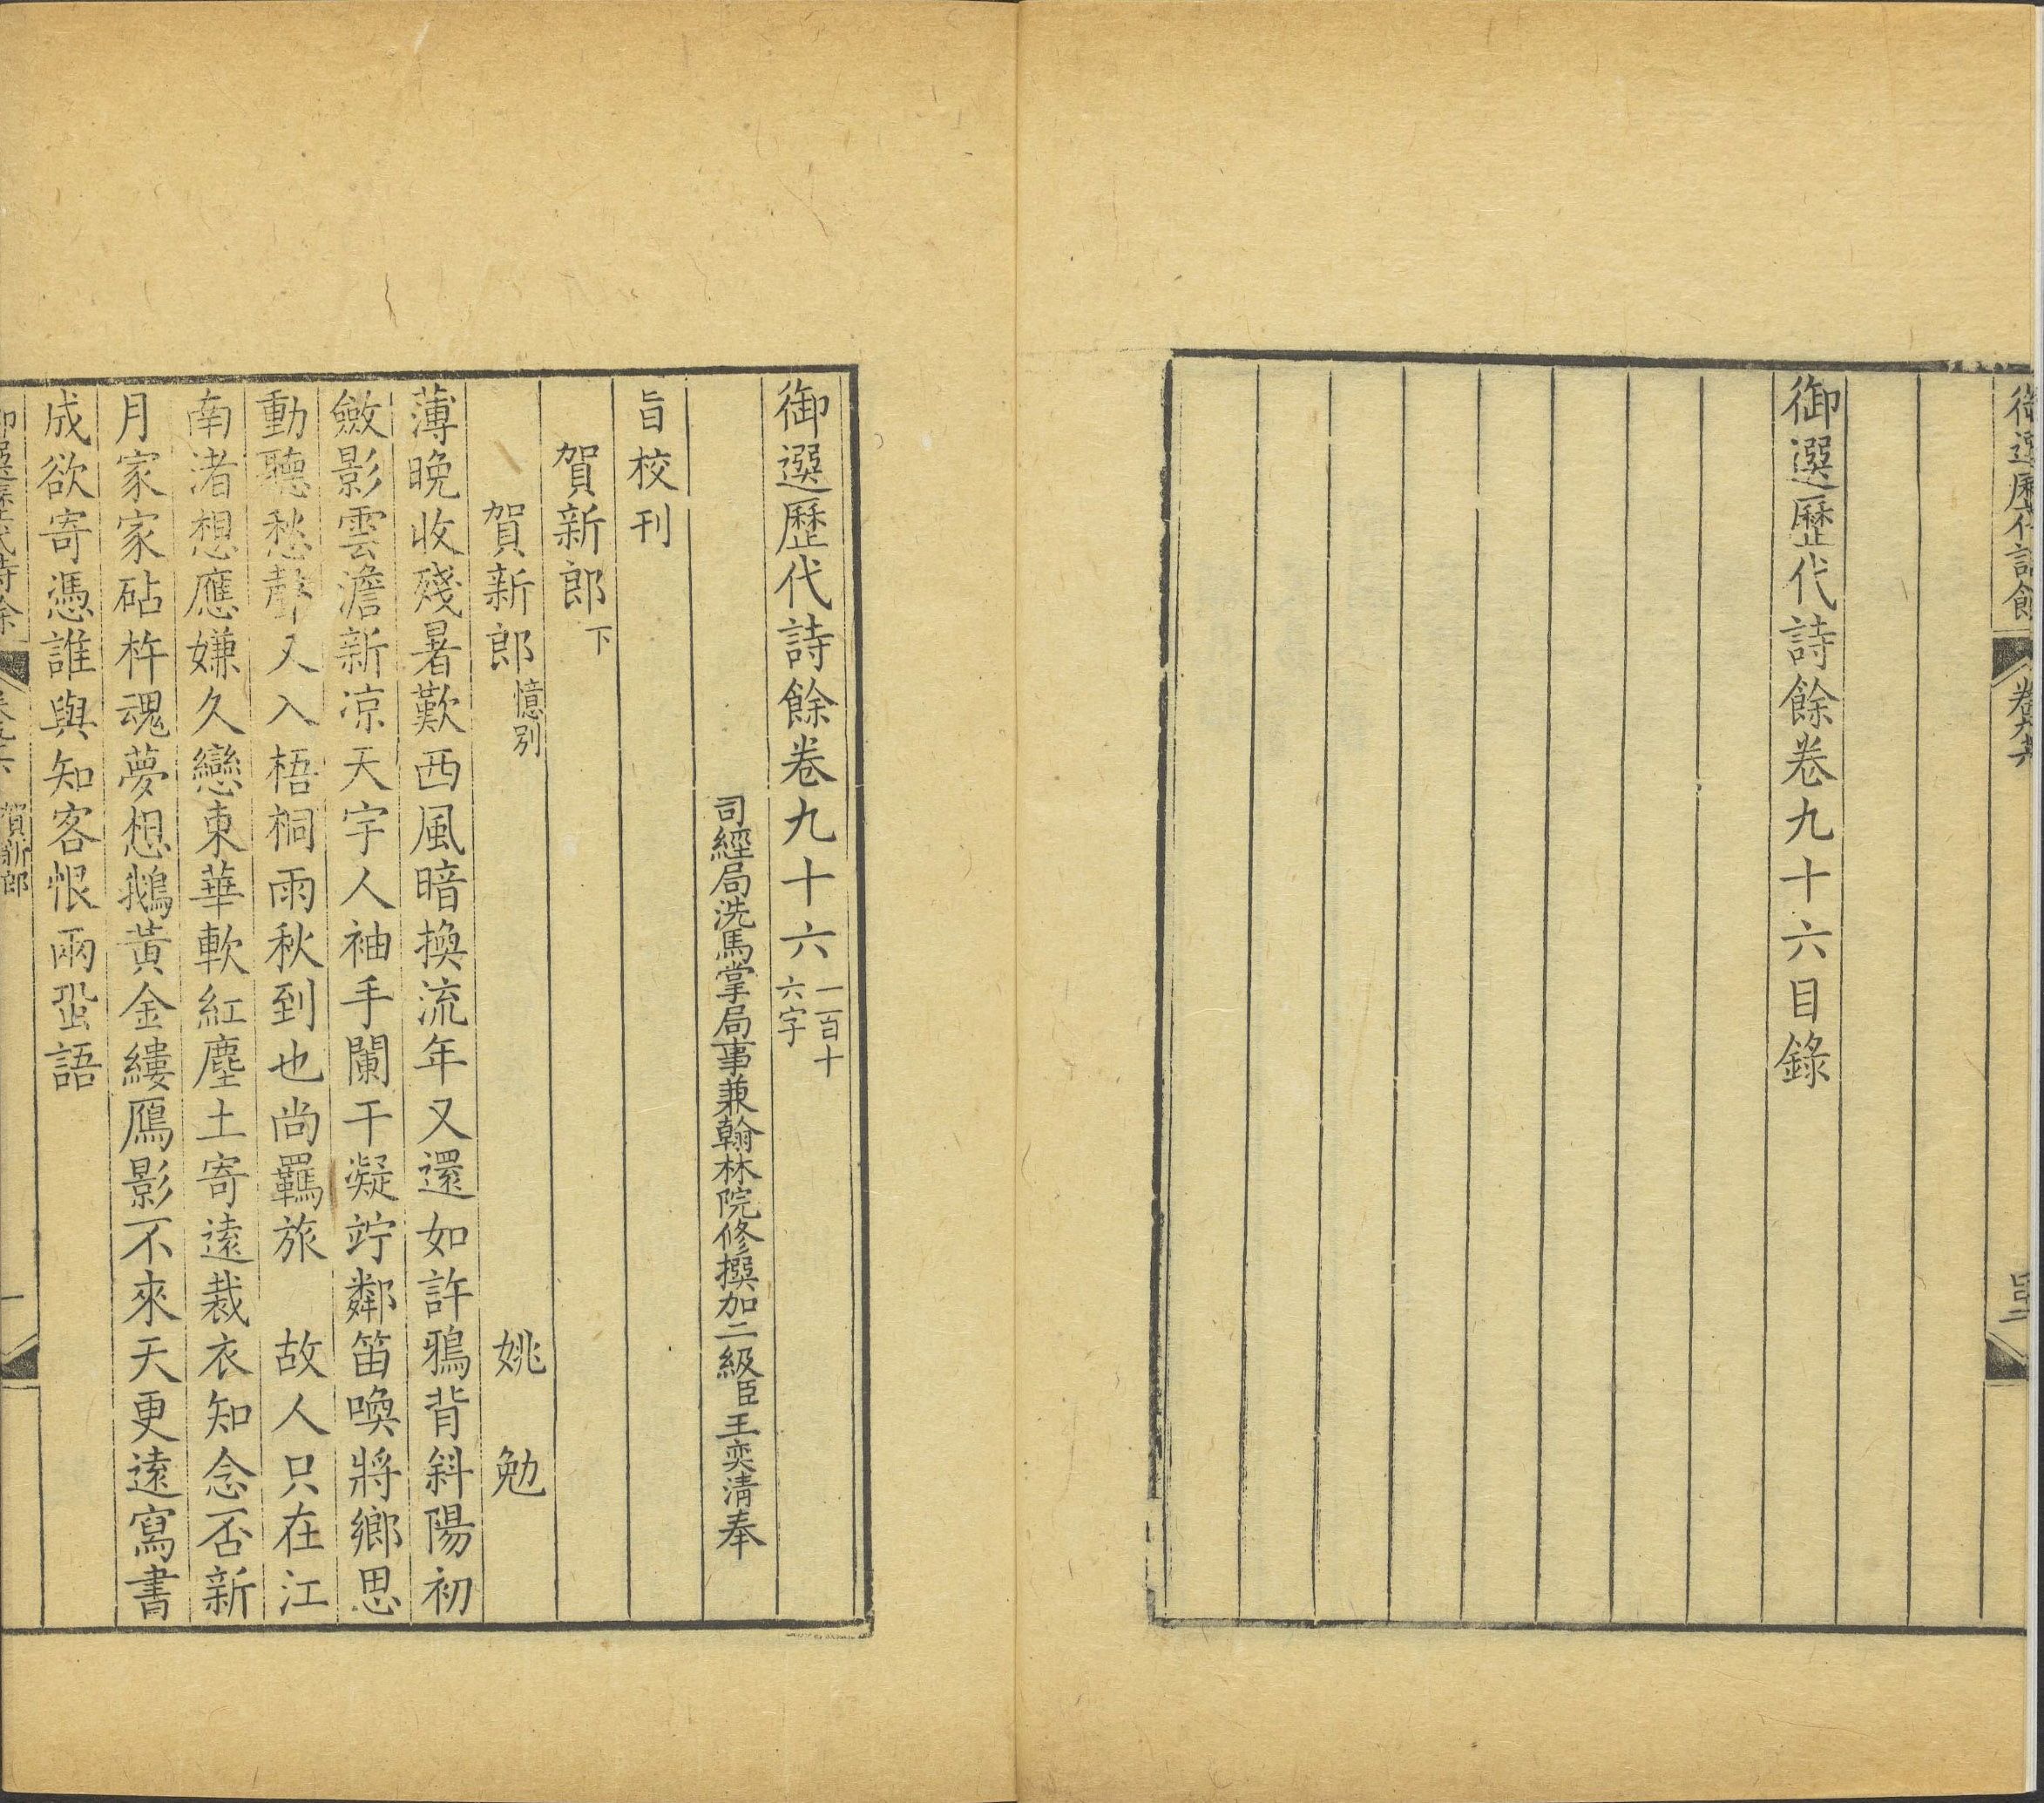 御選歷代詩餘 卷九十六
御選歷代詩餘卷九十六目錄
御選歷代詩餘卷九十六 一百十六字
司經局洗馬掌局事兼翰林院修撰加二級臣王奕清奉
旨校刊
賀新郎下
賀新郎 憶別 姚勉
薄晚收殘暑歎西風暗換流年又還如許鴉背斜陽初
斂影雲澹新凉天宇人袖手闌干凝竚鄰笛喚將鄉思
動聽愁聲又入梧桐雨秋到也尚羈旅 故人只在江
南渚想應嫌久戀東華軟紅塵土寄遠裁衣知念否新
月家家砧杵魂夢想鵝黃金縷鴈影不來天更遠寫書
成欲寄憑誰與知客恨兩蛩語
御選歷代詩餘 卷九十六 賀新郎 一